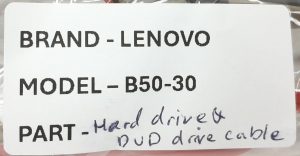 BRAND - LENOVO
MODEL – B50-30
PART - Hard drive &
DVD drive cable